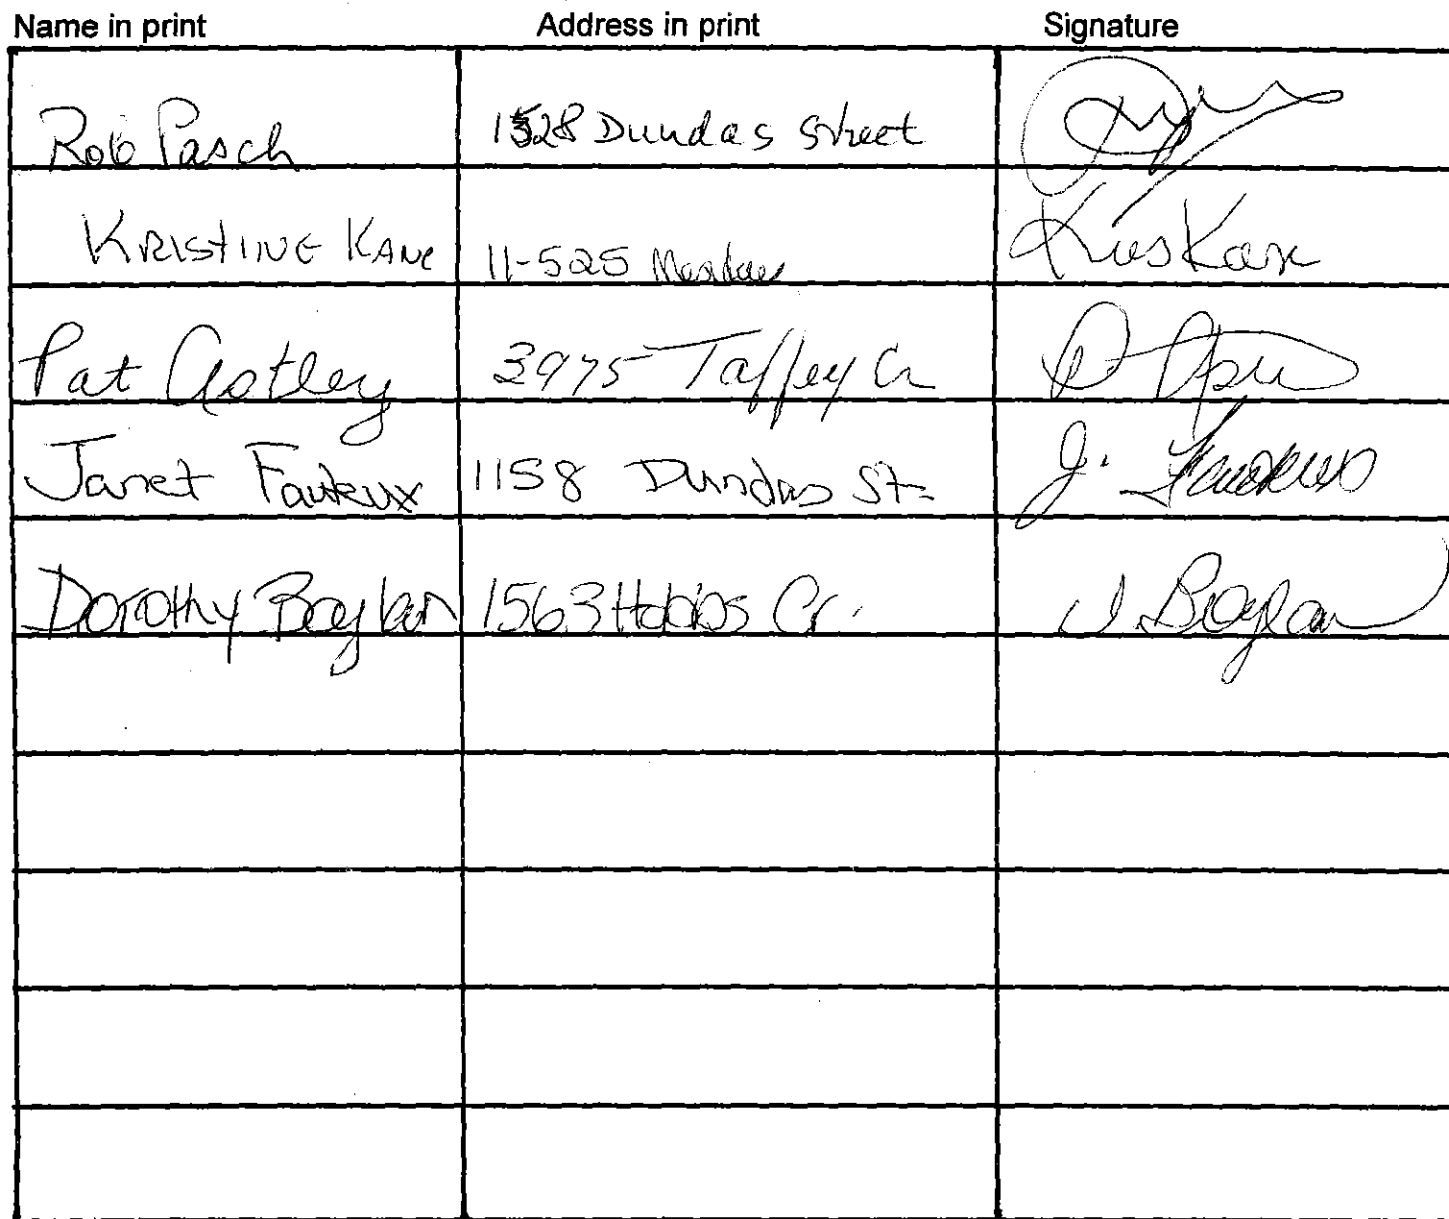 Name in print Address in print Signature
Rob Pasch 1528 Dundas Street
KRISTINE KANE 11-525 Meadow Kris Kane
Pat Astley 3975 Taffey Cr
Janet Fauteux 1158 Dundas St. J. Fauteux
Dorothy Boylan 1563 Hobbs Cr. D. Boylan